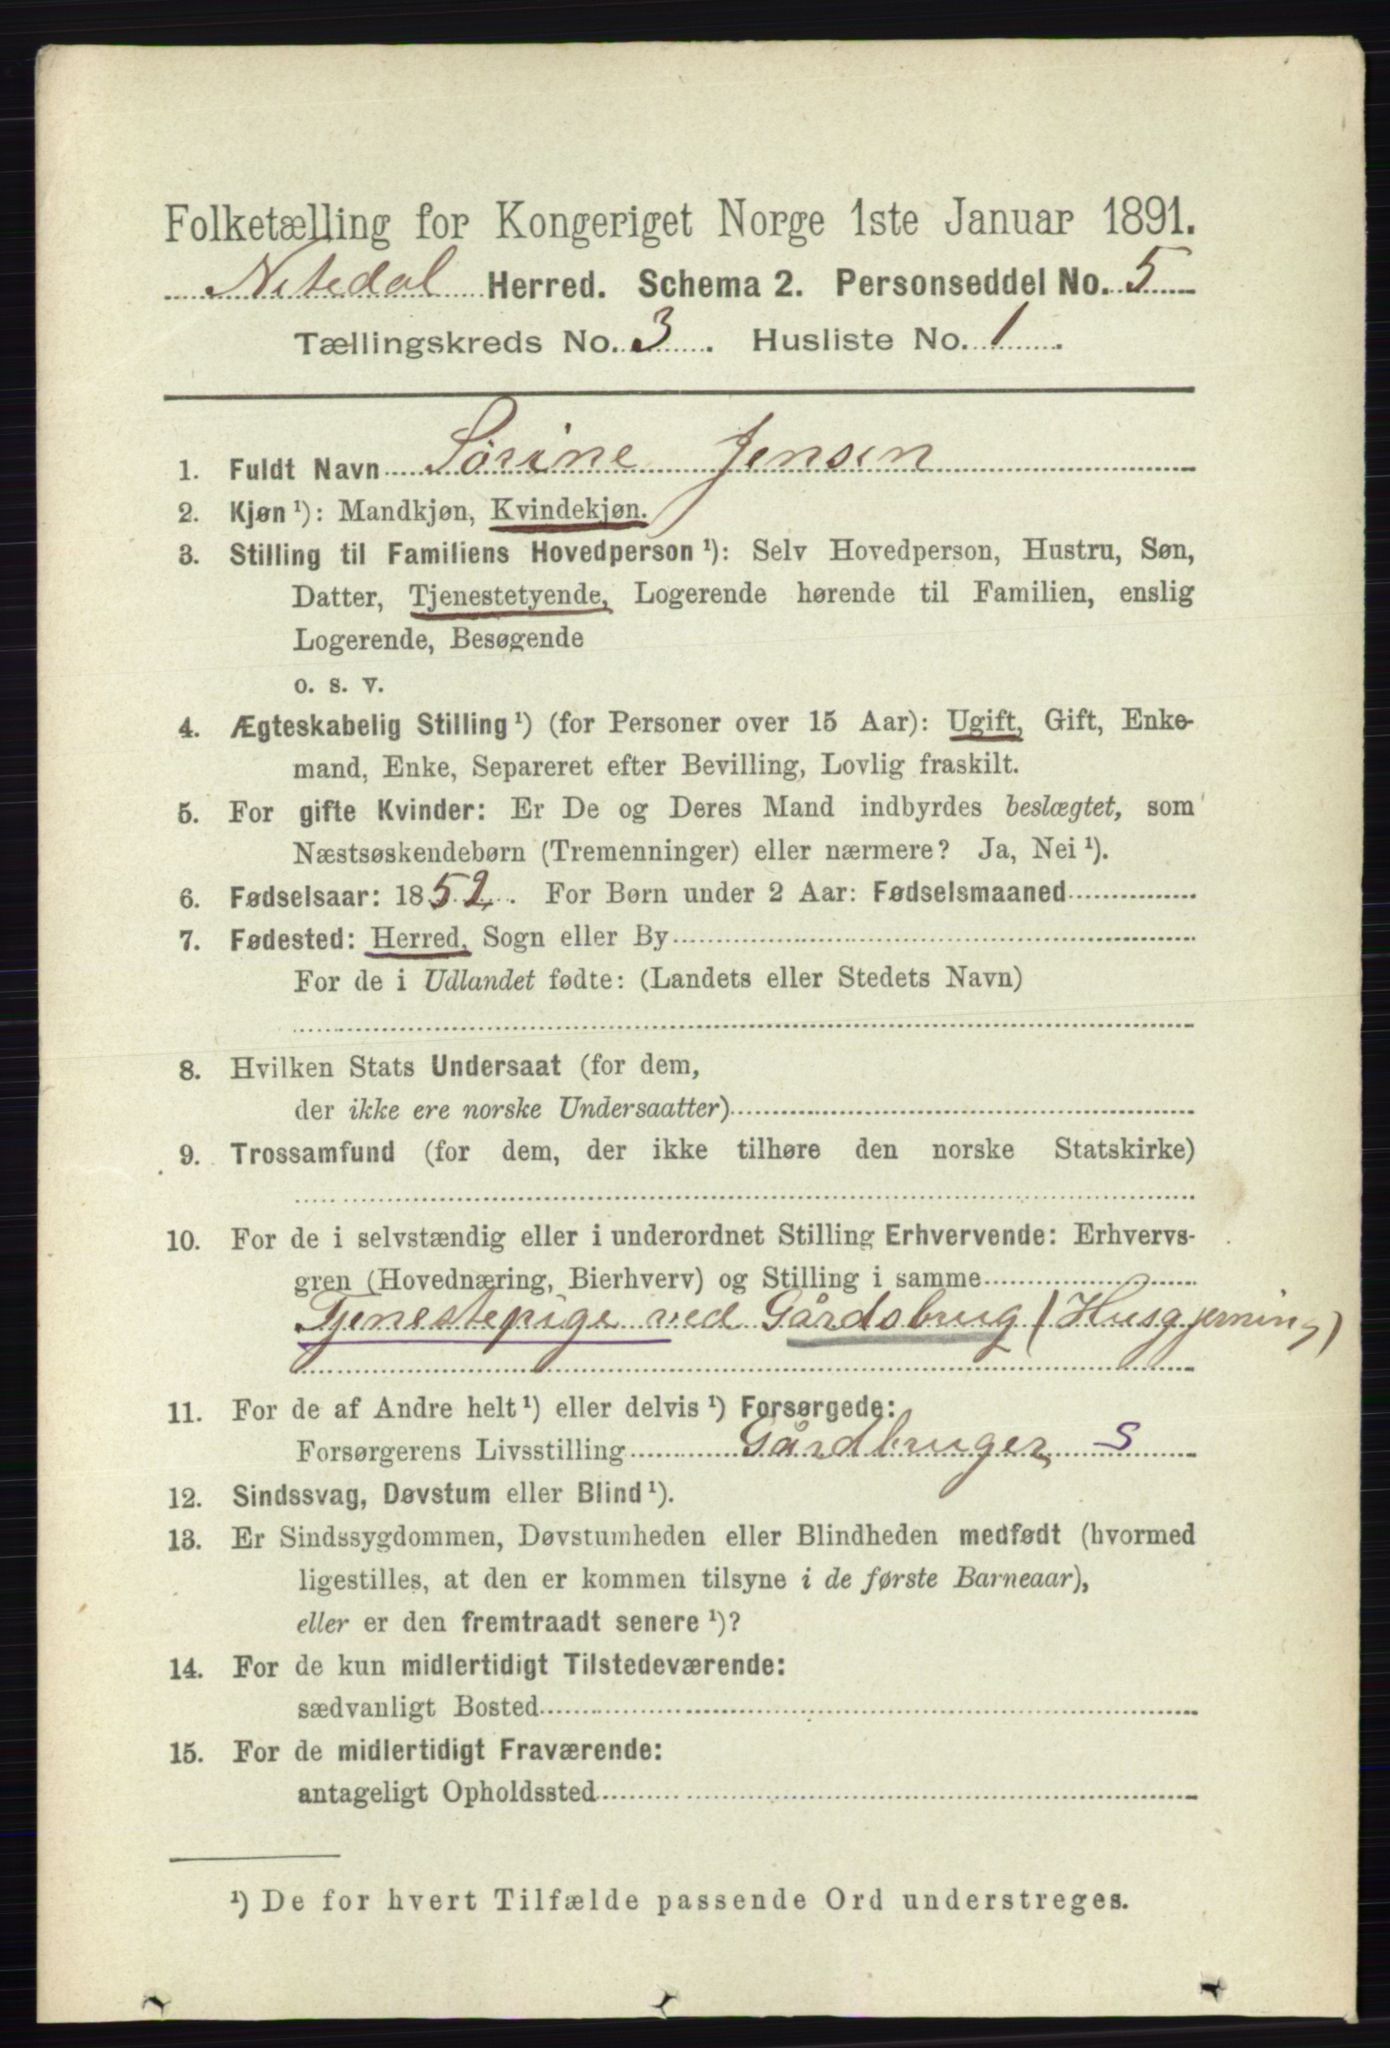 Folketælling for Kongeriget Norge 1ste Januar 1891.
Nitedal Herred. Schema 2. Personseddel No. 5
Tællingskreds No. 3. Husliste No. 1.
1. Fuldt Navn Sørine Jensen
2. Kjøn ¹): Mandkjøn, Kvindekjøn.
3. Stilling til Familiens Hovedperson ¹): Selv Hovedperson, Hustru, Søn,
Datter, Tjenestetyende, Logerende hørende til Familien, enslig
Logerende, Besøgende
o. s. v.
4. Ægteskabelig Stilling ¹) (for Personer over 15 Aar): Ugift, Gift, Enke-
mand, Enke, Separeret efter Bevilling, Lovlig fraskilt.
5. For gifte Kvinder: Er De og Deres Mand indbyrdes beslægtet, som
Næstsøskendebørn (Tremenninger) eller nærmere? Ja, Nei ¹).
6. Fødselsaar: 1852. For Børn under 2 Aar: Fødselsmaaned
7. Fødested: Herred, Sogn eller By
For de i Udlandet fødte: (Landets eller Stedets Navn)
8. Hvilken Stats Undersaat (for dem,
der ikke ere norske Undersaatter)
9. Trossamfund (for dem, der ikke tilhøre den norske Statskirke)
10. For de i selvstændig eller i underordnet Stilling Erhvervende: Erhvervs-
gren (Hovednæring, Bierhverv) og Stilling i samme
Tjenestepige ved Gårdsbrug (Husgjerning)
11. For de af Andre helt ¹) eller delvis ¹) Forsørgede:
Forsørgerens Livsstilling Gårdbruger S
12. Sindssvag, Døvstum eller Blind ¹).
13. Er Sindssygdommen, Døvstumheden eller Blindheden medfødt (hvormed
ligestilles, at den er kommen tilsyne i de første Barneaar),
eller er den fremtraadt senere ¹)?
14. For de kun midlertidigt Tilstedeværende:
sædvanligt Bosted
15. For de midlertidigt Fraværende:
antageligt Opholdssted
¹) De for hvert Tilfælde passende Ord understreges.